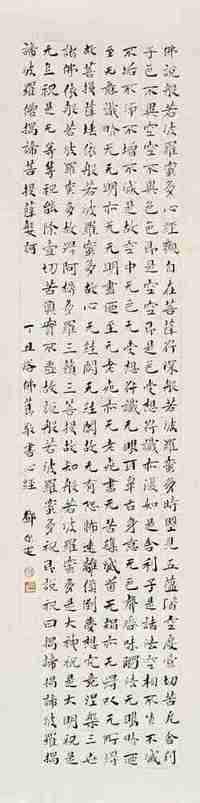 佛說般若波羅蜜多心經觀自在菩薩行深般若波羅蜜多時照見五蘊皆空度一切苦厄舍利
子色不異空空不異色色即是空空即是色受想行識亦復如是舍利子是諸法空相不生不滅
不垢不淨不增不減是故空中无色无受想行識无眼耳鼻舌身意无色聲香味觸法无眼界乃
至无意識界无无明亦无无明盡乃至无老死亦无老死盡无苦集滅道无智亦无得以无所得
故菩提薩埵依般若波羅蜜多故心无罣礙无罣礙故无有恐怖遠離顛倒夢想究竟涅槃三世
諸佛依般若波羅蜜多故得阿耨多羅三藐三菩提故知般若波羅蜜多是大神呪是大明呪是
无上呪是无等等呪能除一切苦真實不虛故說般若波羅蜜多呪即說呪曰揭諦揭諦波羅揭
諦波羅僧揭諦菩提薩婆訶 丁丑浴佛敬書心經 鄧